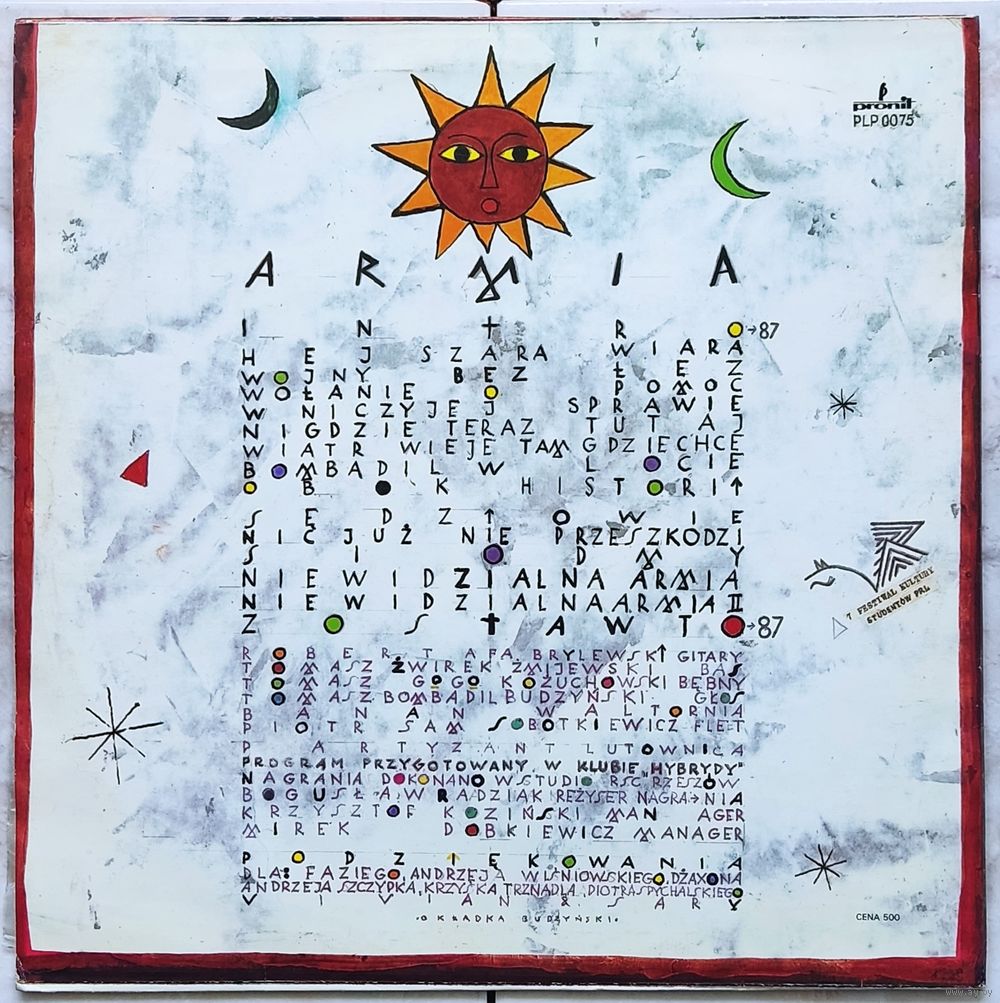 pronit
PLP 0075
ARMIA
IN†RO→87
HEJ SZARA WIARA
WOJNY BEZ ŁEZ
WOŁANIE O POMOC
W NICZYJEJ SPRAWIE
NIGDZIE TERAZ TUTAJ
WIATR WIEJE TAM GDZIE CHCE
BOMBADIL W LOCIE
OBOK HISTORI↑
SĘDZ↑OWIE
NIC JUŻ NIE PRZESZKODZI
SIODMY
NIEWIDZIALNA ARMIA
NIEWIDZIALNA ARMIA II
ZOS†AW TO→87
ROBERT AFA BRYLEWSK↑ GITARY
TOMASZ ŻWIREK ŻMIJEWSKI BAS
TOMASZ GOGO KOŻUCHOWSKI BĘBNY
TOMASZ BOMBADIL BUDZYŃSKI GŁOS
BANAN WALTORNIA
PIOTR SAM SOBOTKIEWICZ FLET
PARTYZANT LUTOWNICA
PROGRAM PRZYGOTOWANY W KLUBIE „HYBRYDY"
NAGRANIA DOKONANO W STUDIO RSC RZESZÓW
BOGUSŁAW RADZIAK REŻYSER NAGRA→NIA
KRZYSZTOF KOZIŃSKI MANAGER
MIREK DOBKIEWICZ MANAGER
PODZIĘKOWANIA
DLA: FAZIEGO, ANDRZEJA WIŚNIOWSKIEGO, DŻAXONA
ANDRZEJA SZCZYPKA, KRZYŚKA TRZNADLA, PIOTRA SPYCHALSKIEGO
VIVIAN & SARY
OKŁADKA BUDZYŃSKI
7 FESTIWAL KULTURY
STUDENTÓW PRL
CENA 500
www.ay.by